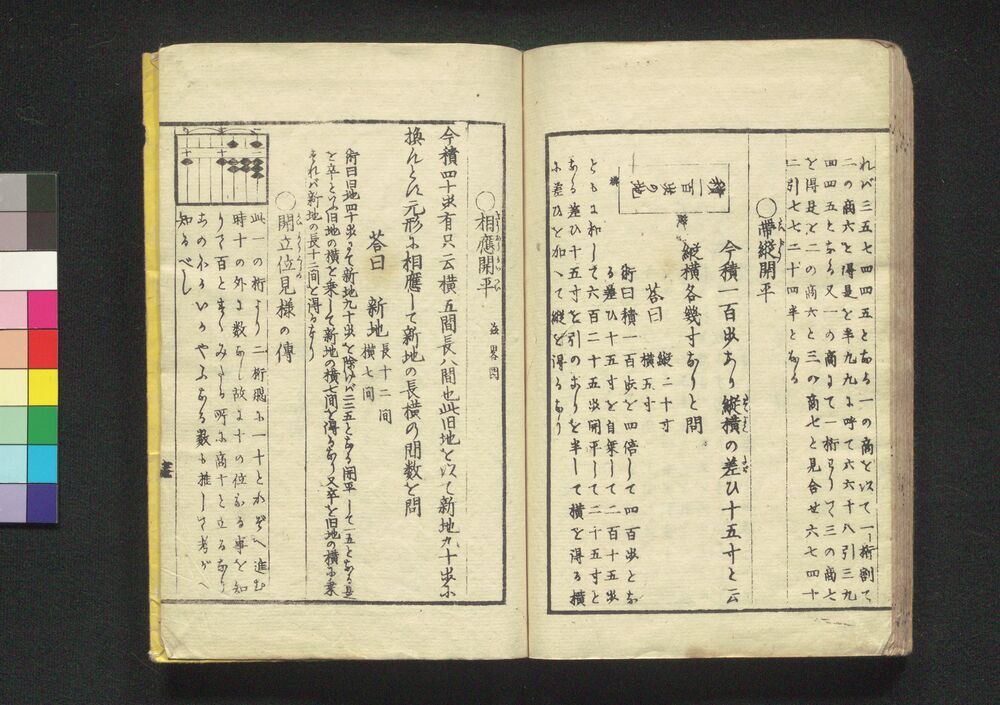 れバ三五七四四五となる一の商を以て一一桁割て
二の商六と得是を半九九に呼て六六十八引三九
四四五となる又一の商にて一桁わりて三の商七
を得是を二の商六と三の商七と見合せ六七四十
二引七七二十四半と
○帯縦開平
今積一百歩あり縦横の差ひ十五寸と云
縦横各幾寸ありと問
答曰
縦二十寸
横五寸
積一百歩の地
縦
横
術曰積一百歩を四倍して四百歩とな
る差ひ十五寸を自乗して二百十五歩
ともに和して六百二十五歩開平して二十五寸と
なる差ひ十五寸を引のこりを半して横を得る横
に差ひを加へて縦を得るなり
○相應開平
益畧問
今積四十歩有只云横五間長八間也此旧地を以て新地九十歩に
換んとに元形に相應して新地の長横の間数を問
答曰
新地
長十二間
横七間
術曰旧地四十歩にて新地九十歩を除けバ二二五となる開平して一五となる是
を卒と旧地の横を乗して新地の横七間を得るなり又卒を旧地の横に乗
すれバ新地の長十二間を得るなり
○開立位見様の傳
一
十
此一の桁より二桁飛に一十とかぞへ進む
時十の外に数あし故に十の位なる事を知
りて百とまくみたる所に商十と立るなり
知るべし